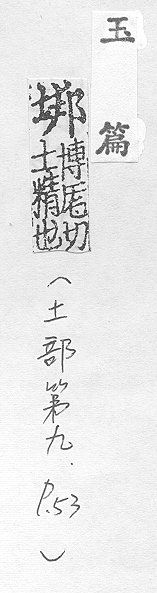 玉篇
垹
博厖切
土精也
(土部第九. P.53)